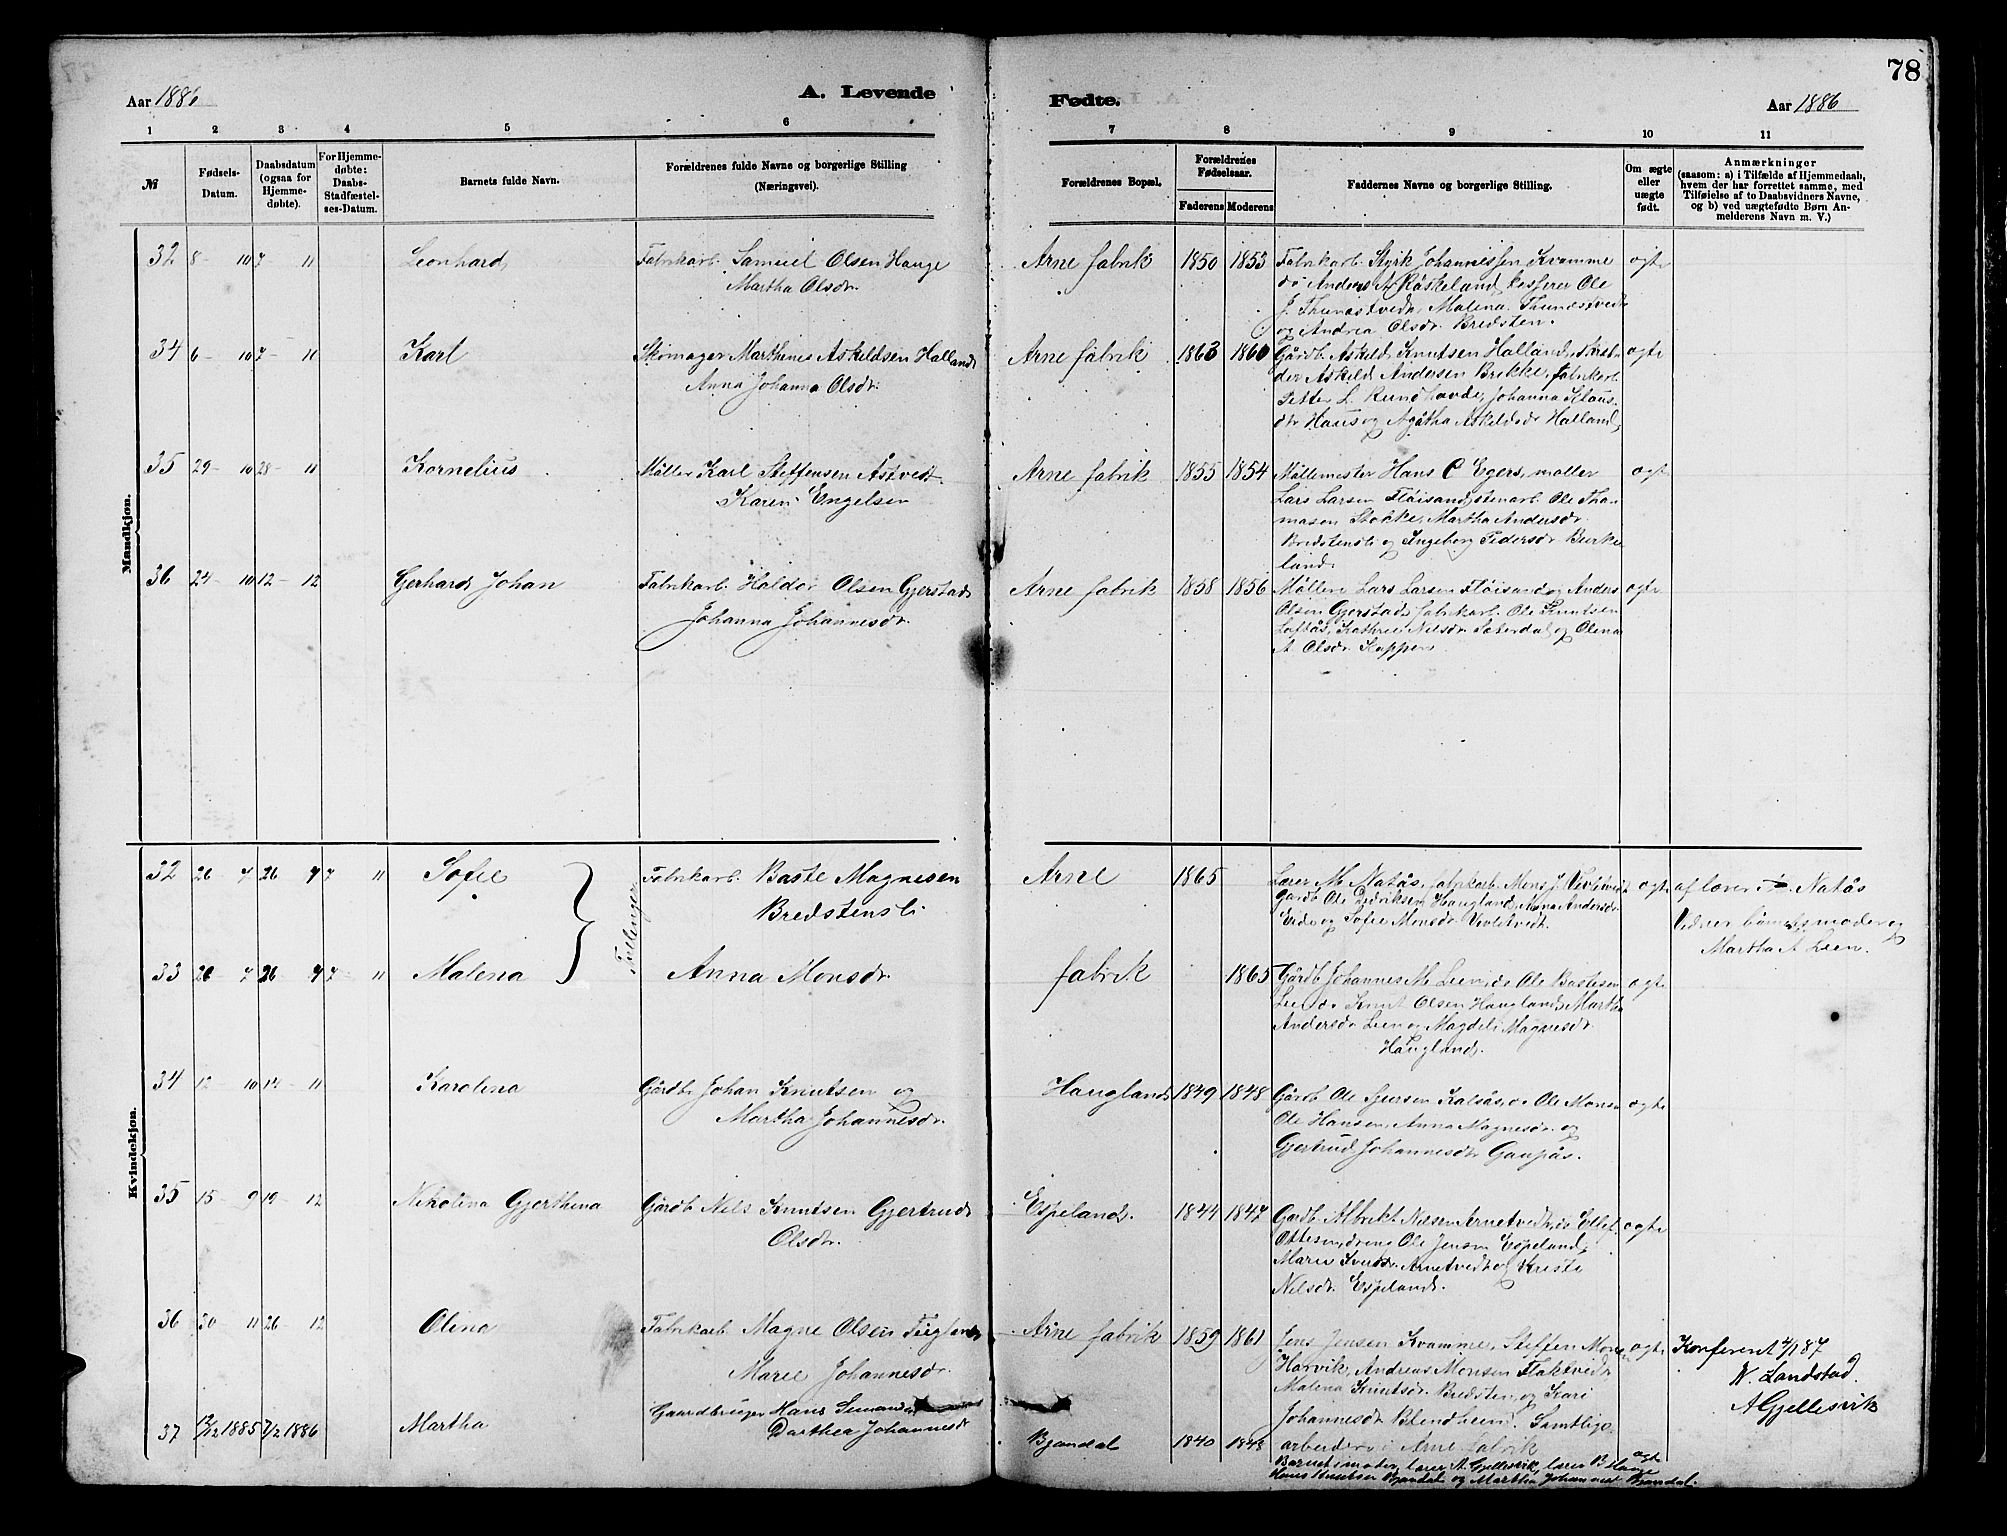 78
Aar 1886
A. Levende
Fødte.
Aar 1886
1 2 3 4 5 6 7 8 9 10 11
№
Fødsels-
Datum.
Daabsdatum
(ogsaa for
Hjemme-
døbte).
For Hjemme-
døbte:
Daabs-
Stadfæstel-
ses-Datum.
Barnets fulde Navn.
Forældrenes fulde Navne og borgerlige Stilling
(Næringsvei).
Forældrenes Bopæl.
Forældrenes
Fødselsaar.
Faderens Moderens
Faddernes Navne og borgerlige Stilling.
Om ægte
eller
uægte
født.
Anmærkninger
(saasom: a) i Tilfælde af Hjemmedaab,
hvem der har forrettet samme, med
Tilføielse af to Daabsvidners Navne,
og b) ved uægtefødte Børn An-
melderens Navn m. V.)
Mandkjøn.
32 8 - 10 7 - 11 Leonhard
Fabrikarb. Samuel Olsen Hauge
Martha Olsdr.
Arne fabrik 1850 1853
Fabrikarb. Styrk Johannessen Kvamme
do Anders A Røskeland, kasserer Ole
J. Thunestvedt, Malena Thunestvedt
og Andrea Olsdr. Bredsten.
ægte
34 6 - 10 7 - 11 Karl
Skomager Marthenis Askeldsen Halland
Anna Johanna Olsdr.
Arne fabrik 1863 1860
Gårdb. Askild Knutsen Halland,
Askild Andersen Brekke, fabrikarb.
Petter L. Rundhovde, Johanna Klaus-
dtr Haus og Agatha Askeldsdr Halland,
ægte
35 29 - 10 28 - 11 Kornelius
Møller Karl Steffensen Astvedt
Karen Engelsen
Arne fabrik 1855 1854
Møllemester Hans C Egers, møller
Lars Larsen Fløisand, stenarb. Ole Tho-
masen Stokke, Martha Andersdr.
Bredstensli og Ingeborg Pedersdr Birke-
land.
ægte
36 24 - 10 12 - 12 Gerhard Johan
Fabrikarb. Haldor Olsen Gjerstad
Johanna Johannesdr.
Arne fabrik 1858 1856
Møllere Lars Larsen Fløisand og Anders
Olsen Gjerstad, fabrikarb. Ole Knutsen
Loftås, Kathrine Nilsdr. og Olena
A. Olsdr
ægte
Kvindekjøn.
32 26 7 26 7 7 11 Sofie
Tvillinger
Fabrikarb. Baste Magnesen
Bredstensli
Arne 1865
Lærer M. Natås, fabrikarb. Mons J. Vivletvedt
Gårdb Ole Didriksen Haugland, Anna Andersdr
Eide og Sofie Monsdr. Vivletvedt.
ægte
af lærer Natås
Vidner barnets moder og
Martha A Leen.
33 26 7 26 7 7 11 Malena
Anna Monsdr.
fabrik 1865
Gårdb Johannes M. Leen, do Ole Bastesen
Leen, do Knut Olsen Haugland, Martha
Andersdr Leen og Magdeli Magnesdr.
Haugland.
ægte
34 12 - 10 14 - 11 Karolina
Gårdb Johan Knutsen og
Martha Johannesdr.
Haugland 1849 1848
Gårdb Ole Sjursen Kalsås, do Ole Monsen
Ole Hansen, Anna Magnesdr. og
Gjertrud Johannesdr Gaupås.
ægte
35 15 - 9 19 - 12 Nikolina Gjerthena
Gårdb Nils Knutsen Gjertrud
Olsdr.
Espeland. 1844 1847
Gårdb Albrikt Nilsen Arnetvedt, do Ellef
Ottesen, dreng Ole Jensen Espeland,
Marie Iversdr. Arnetvedt og Kristi
Nilsdr. Espeland.
ægte
36 30 - 11 26 - 12 Olina
Fabrikarb Magne Olsen
Marie Johannesdr.
Arne fabrik 1859 1861
Jens Jensen Kvamme, Steffen Monsen
Harvik, Andreas Monsen Flaktvedt
Malena Knutsdr. Bredsten og Kari
Johannesdr Blindheim. Samtlige
arbeidere i Arne fabrik
ægte
Konfereret 4/1 87
N. Landstad
A Gjellesvik
37 12/12 1885 7/2 1886 Martha
Gaardbruger Hans
Darthea Johannesdr
Bjøndal 1840 1843
Barnets moder, lærer A. Gjellesvik, lærer B Hauge
Hans Knutsen Bjøndal og Martha Johannesdr Bjøndal.
ægte